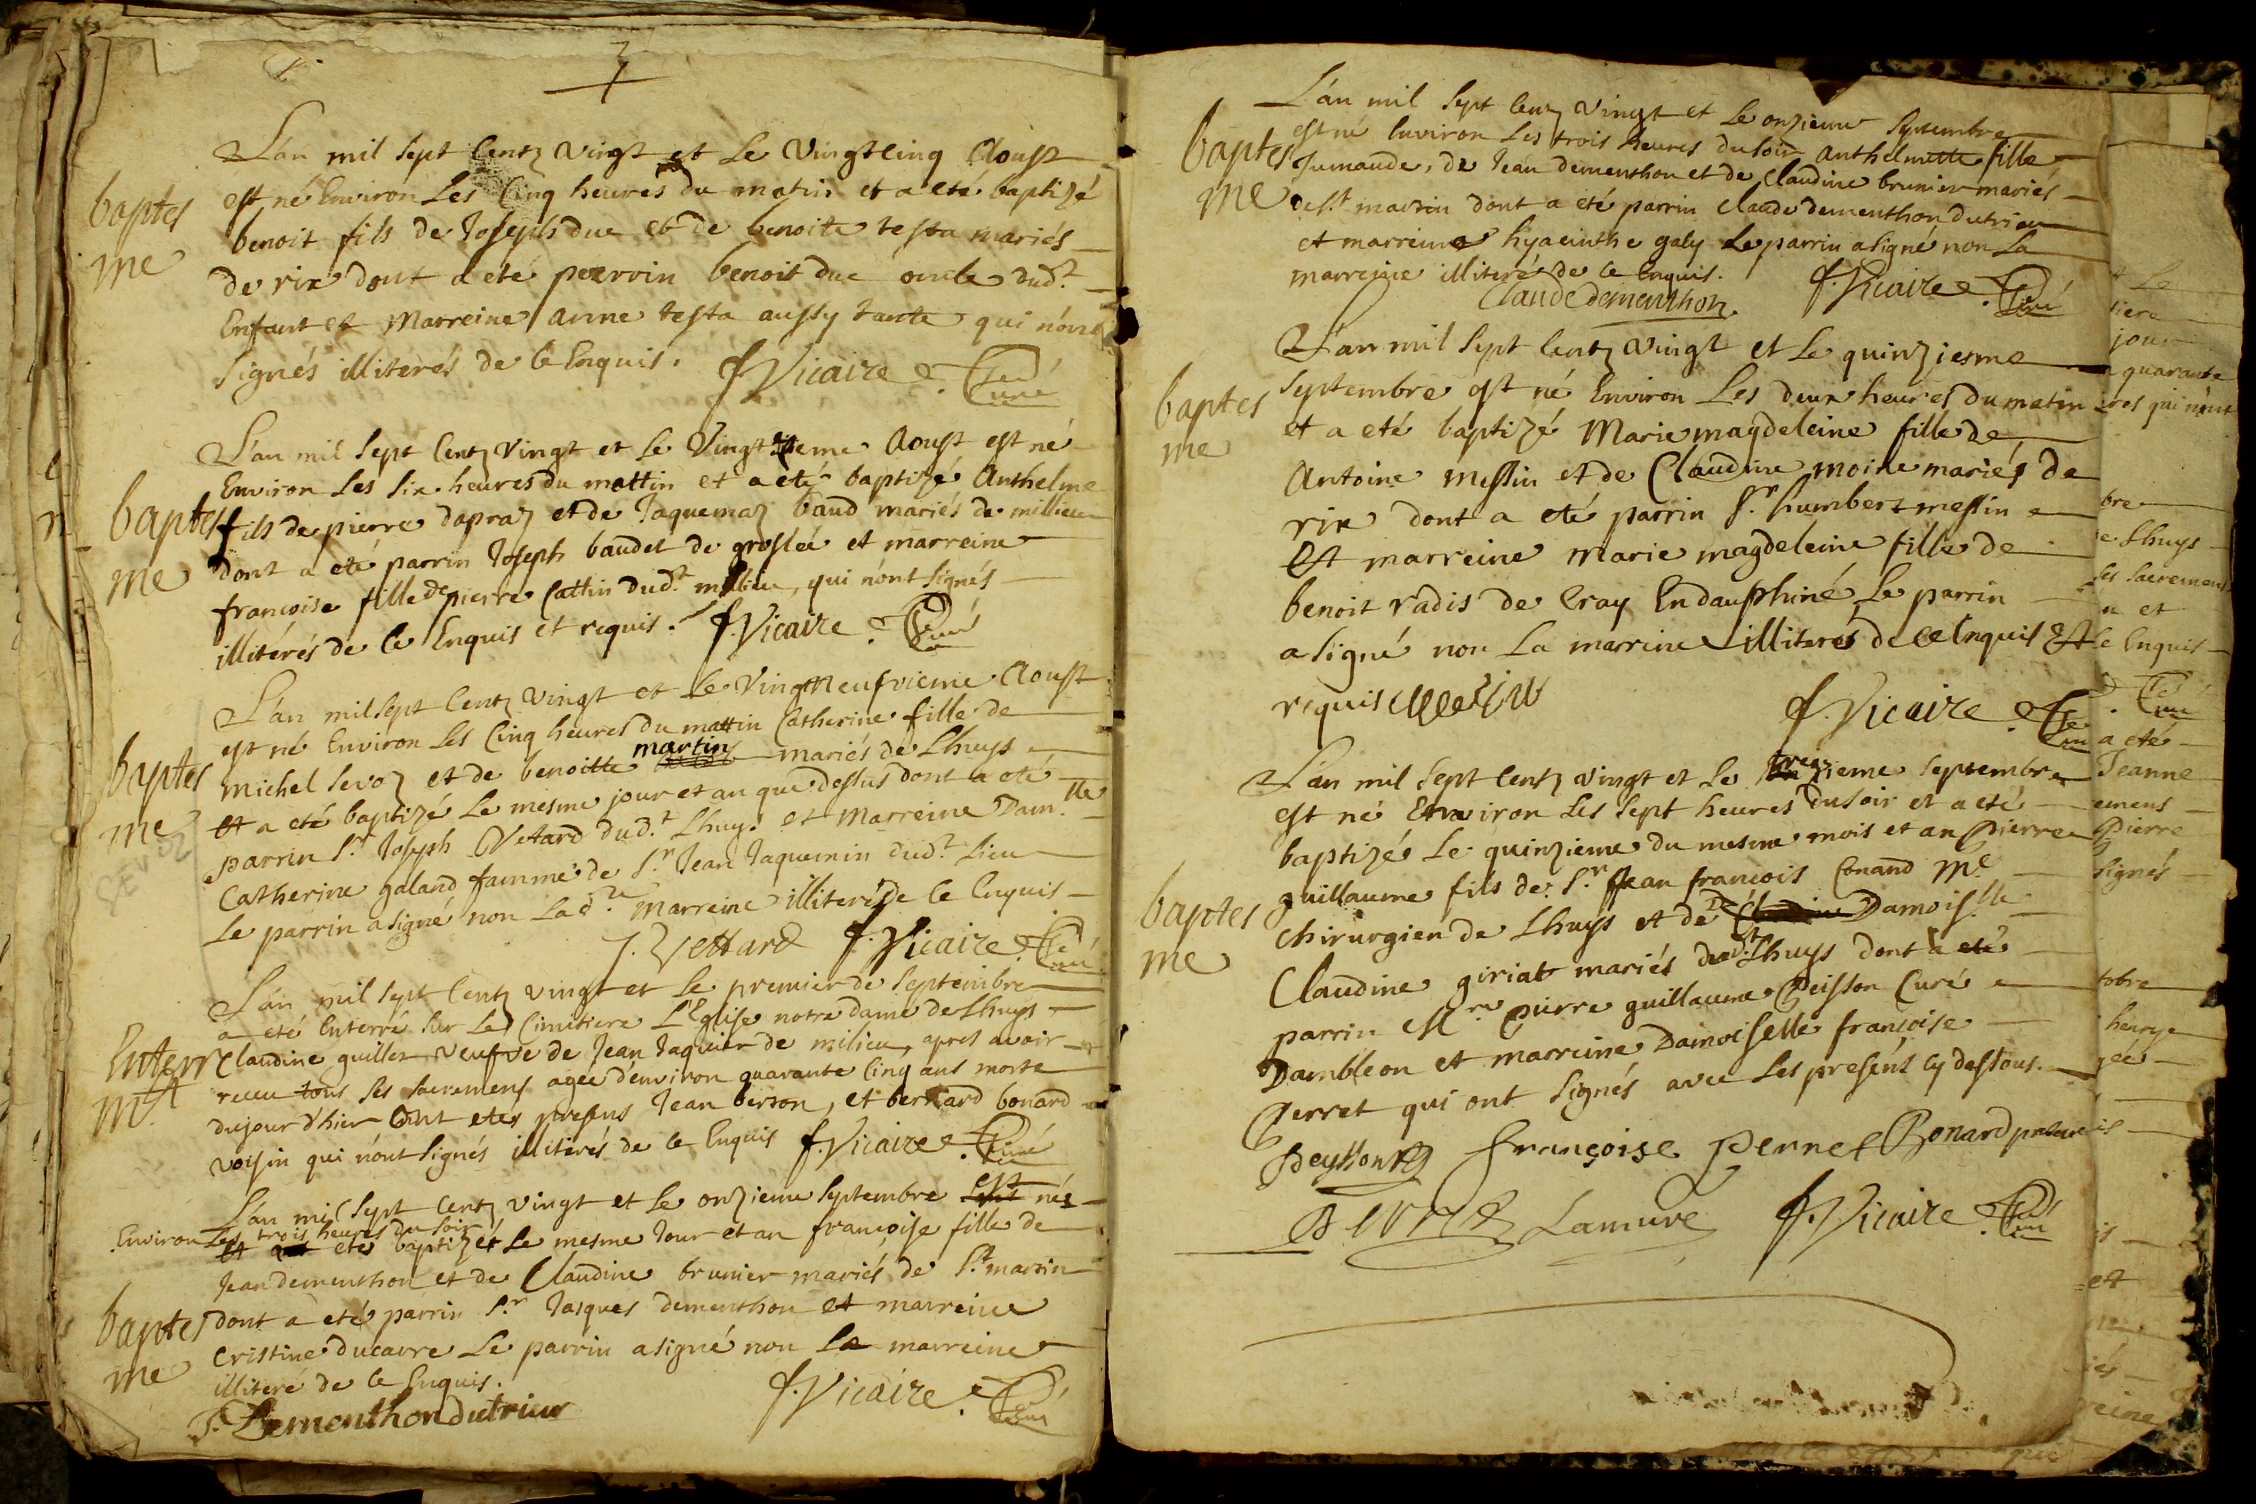 7
L'an mil sept centz vingt et le vingtcinq Aoust
est né Environ les Cinq heures du matin et a eté baptizé
baptes
me
benoit fils de Joseph duc et de benoite testa mariés
de rix dont a eté parrin benoit duc oncle dud.t
Enfant et Marreine anne testa aussy tante qui n'ont
signés illiterés de ce Enquis. f. Vicaire Curé
L'an mil sept centz vingt et le vingt eme Aoust est né
Environ les six heures du mattin et a eté baptizé Anthelme
baptes
me
fils de pierre dapraz et de Jaquemaz baud mariés de millieu
dont a eté parrin Joseph baudet de groslée et marreine
francoise fille de pierre Cattin dud.t milieu, qui n'ont signés
illitérés de ce Enquis et requis. f. Vicaire Curé
L'an mil sept centz vingt et le vingtneufvieme Aoust
est né Environ les Cinq heures du mattin Catherine fille de
baptes
me
michel sevoz et de benoitte martin mariés de Lhuys
et a eté baptizé le mesme jour et an que dessus dont a eté
parrin S.r Joseph Vetard dud.t Lhuys et Marreine Dam.lle
SEVOZ
Catherine galand famme de S.r Jean Jaquemin dud.t lieu
le parrin a signé non lad.te marreine illiteré de ce Enquis
J. Vettard f. Vicaire Curé
L'an mil sept centz vingt et le premier de septembre
a eté Enterré sur le Cimitiere L'Eglise notre dame de Lhuys
Enterre
mt
Claudine guiller veufve de Jean Jaquier de milieu, apres avoir
receu tous ses sacremens agée d'environ quarante cinq ans morte
du jour d'hier ont etes presens Jean berson, et bernard bonard
voisin qui n'ont signés illiterés de ce Enquis f. Vicaire Curé
L'an mil sept centz vingt et le onzieme septembre est nés
Environ les trois heures du soir
et a eté baptizés le mesme Jour et an françoise fille de
Jean dementhon et de Claudine brunier mariés de S.t martin
baptes
me
dont a eté parrin S.r Jasques dementhon et marreine
Cristine ducarre le parrin a signé non la marreine
illiteré de ce Enquis. f. Vicaire Curé
J. Dementhon dutrieu
L'an mil sept centz vingt et le onzieme septembre
est né environ les trois heures du soir anthelmette fille
baptes
me
Jumaude, de Jean dementhon et de Claudine brunier mariés
de S.t martin dont a eté parrin Claude dementhon dutrieu
et marreine hyacinthe galy le parrin a signé non la
marreine illiteré de ce Enquis. f. Vicaire Curé
Claude dementhon
L'an mil sept centz vingt et le quinziesme
septembre est né Environ les deux heures du matin
baptes
me
et a eté baptizé Marie magdeleine fille de
Antoine messin et de Claudine moine mariés de
rix dont a eté parrin S.r humbert messin
et marreine marie magdeleine fille de
benoit radis de Cray En dauphiné le parrin
a signé non la marreine illiterés de ce Enquis et
requis f. Vicaire Curé
L'an mil sept centz vingt et le treizieme septembre
est né Environ les sept heures du soir et a eté
baptizé le quinzieme du mesme mois et an Pierre
baptes
me
guillaume fils de S.r Jean francois Conand M.e
chirurgien de Lhuys et de De Damois.lle
Claudine giriat mariés dud.t Lhuys dont a eté
parrin M.re Pierre guillaume Peisson Curé
Dambleon et marreine Damoiselle françoise
Perret qui ont signés avec les presens cy dessous.
Peysson françoise Pernet Bonard present
Lamure f. Vicaire Curé
t le
tiere
jour
quarante
res qui n'ont
bre
e Lhuys
ses sacremens
n et
ce Enquis
a eté
Jeanne
emens
Pierre
signés
tobre
henry
gée
is
et
iés
reine